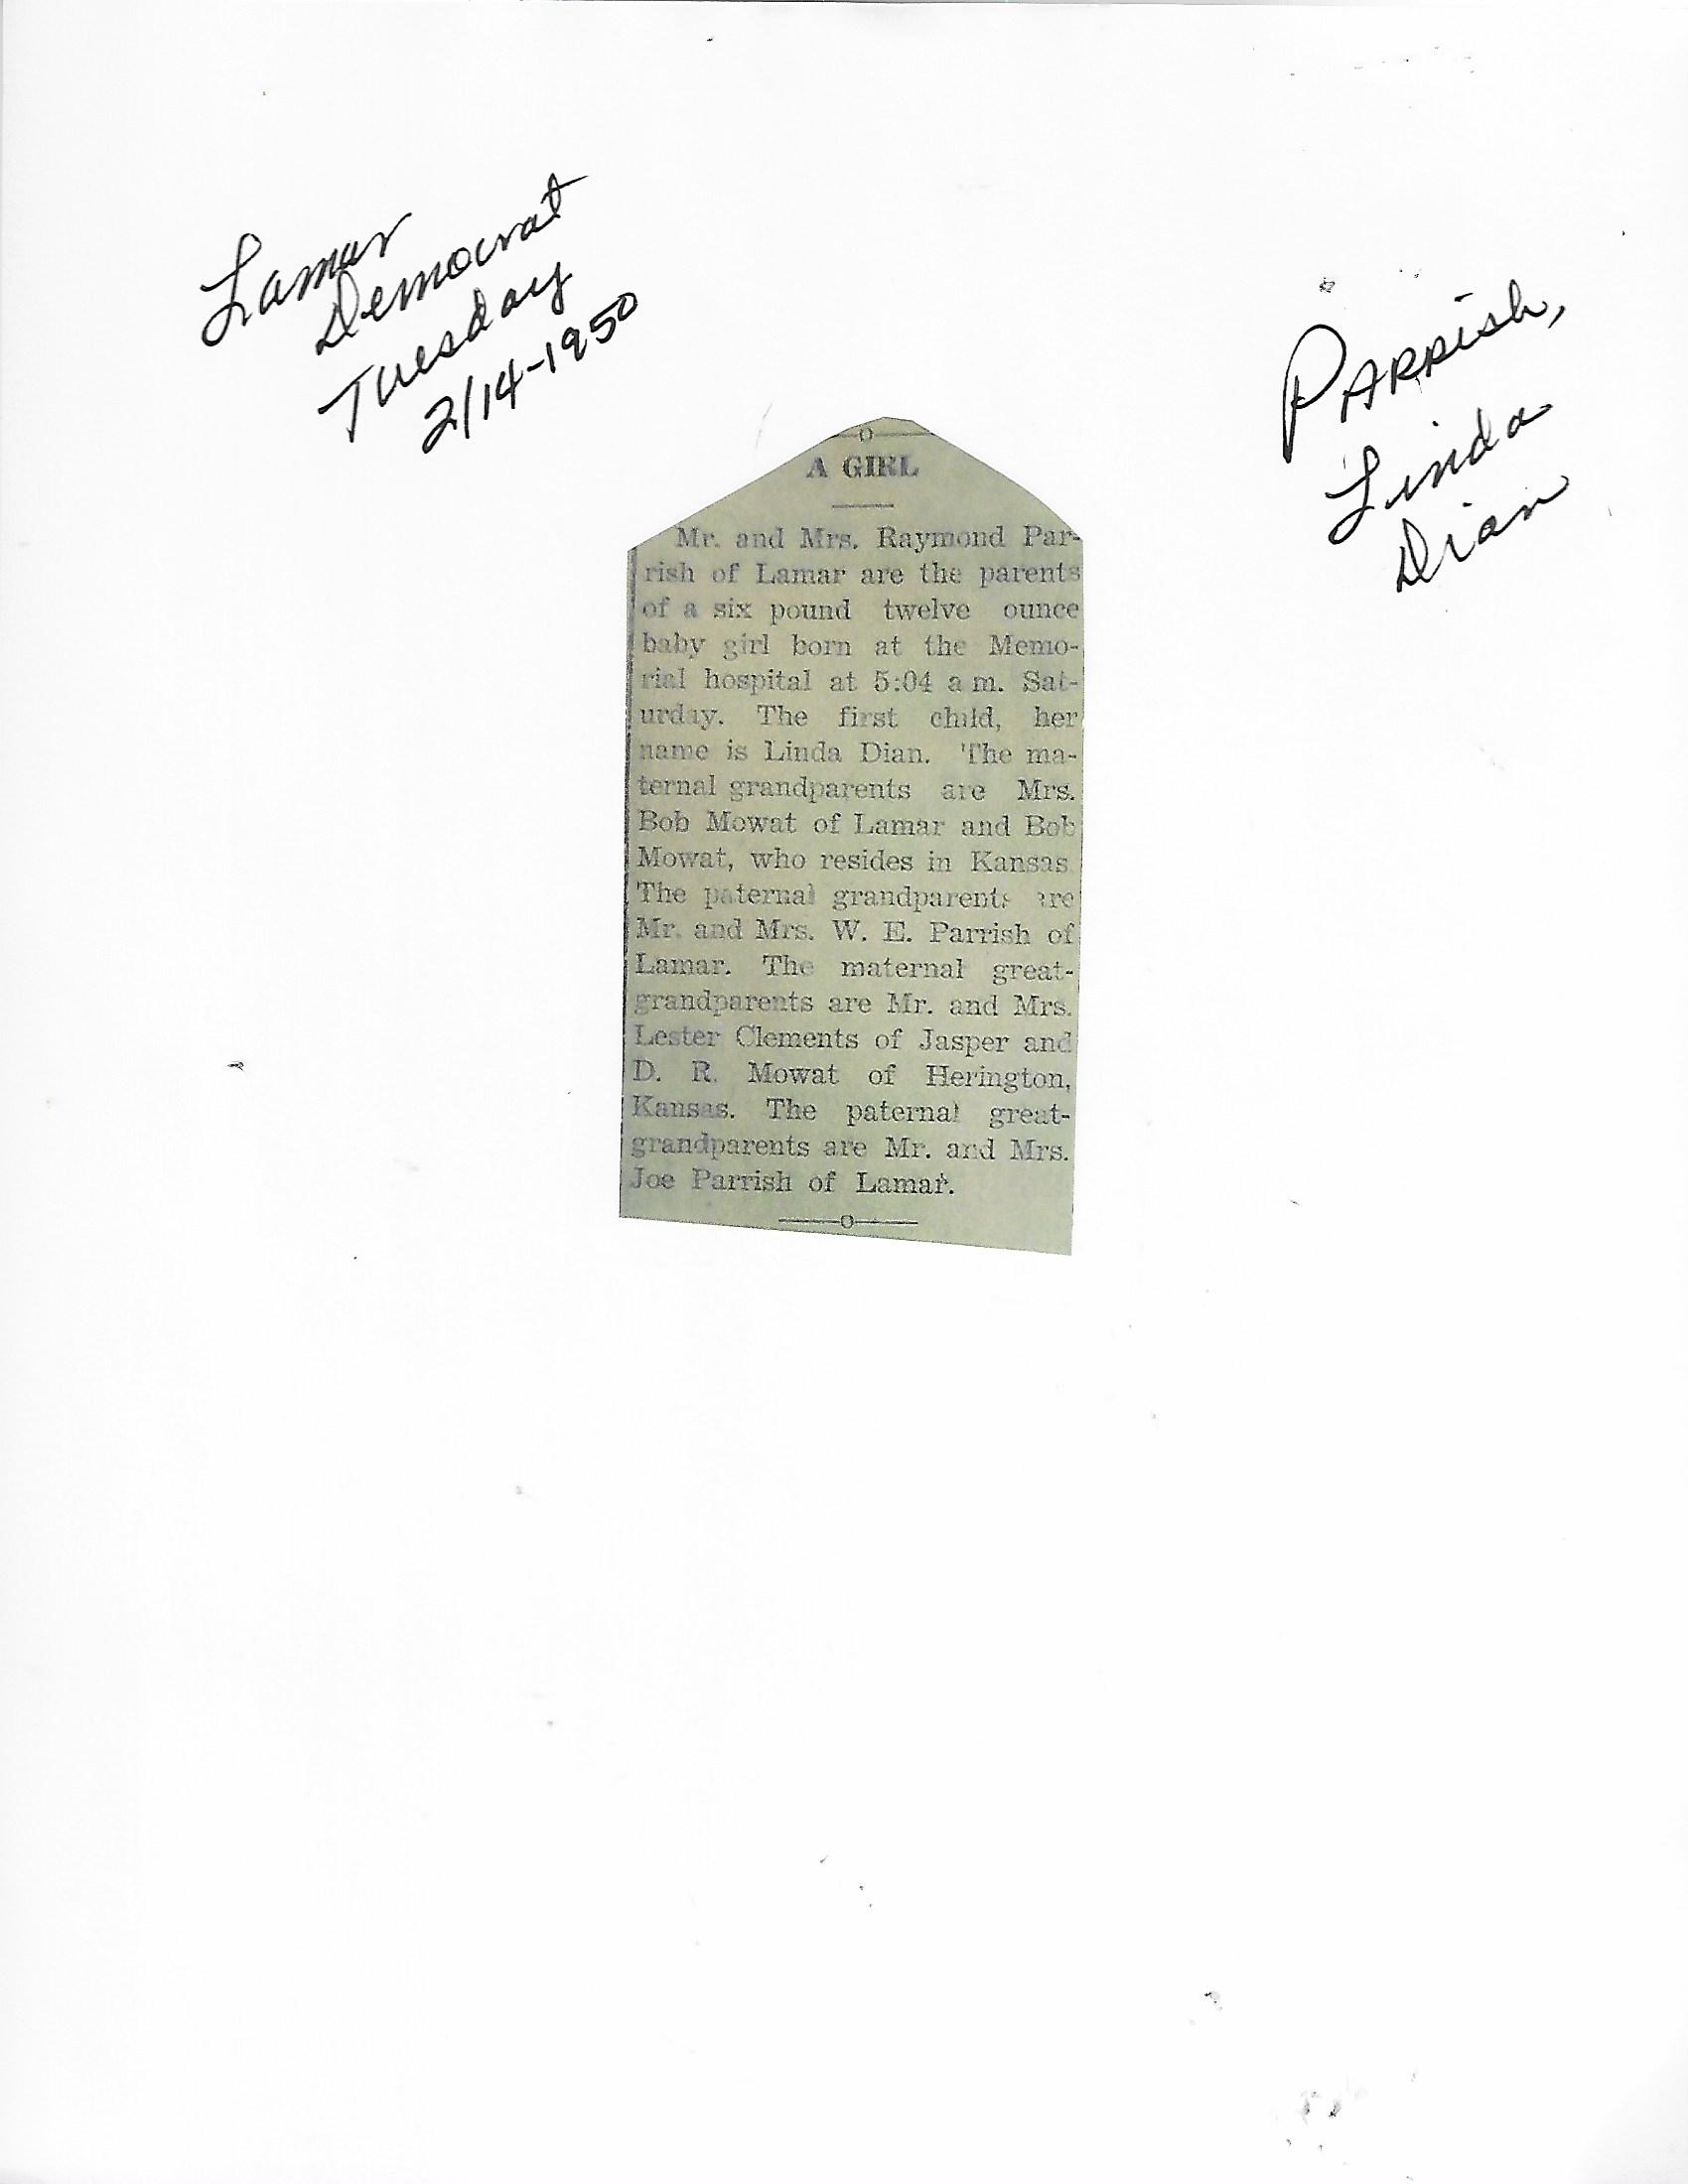 Lamar
Democrat
Tuesday
2/14-1950
Parrish,
Linda
Dian
A GIRL
Mr. and Mrs. Raymond Par-
rish of Lamar are the parents
of a six pound twelve ounce
baby girl born at the Memo-
rial hospital at 5:04 a m. Sat-
urday. The first child, her
name is Linda Dian. The ma-
ternal grandparents are Mrs.
Bob Mowat of Lamar and Bob
Mowat, who resides in Kansas
The paternal grandparents are
Mr. and Mrs. W. E. Parrish of
Lamar. The maternal great-
grandparents are Mr. and Mrs.
Lester Clements of Jasper and
D. R. Mowat of Herington,
Kansas. The paternal great-
grandparents are Mr. and Mrs.
Joe Parrish of Lamar.